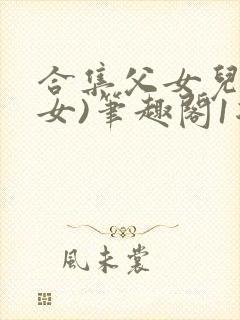 合集父女兒
女)筆趣閣1
風未裳